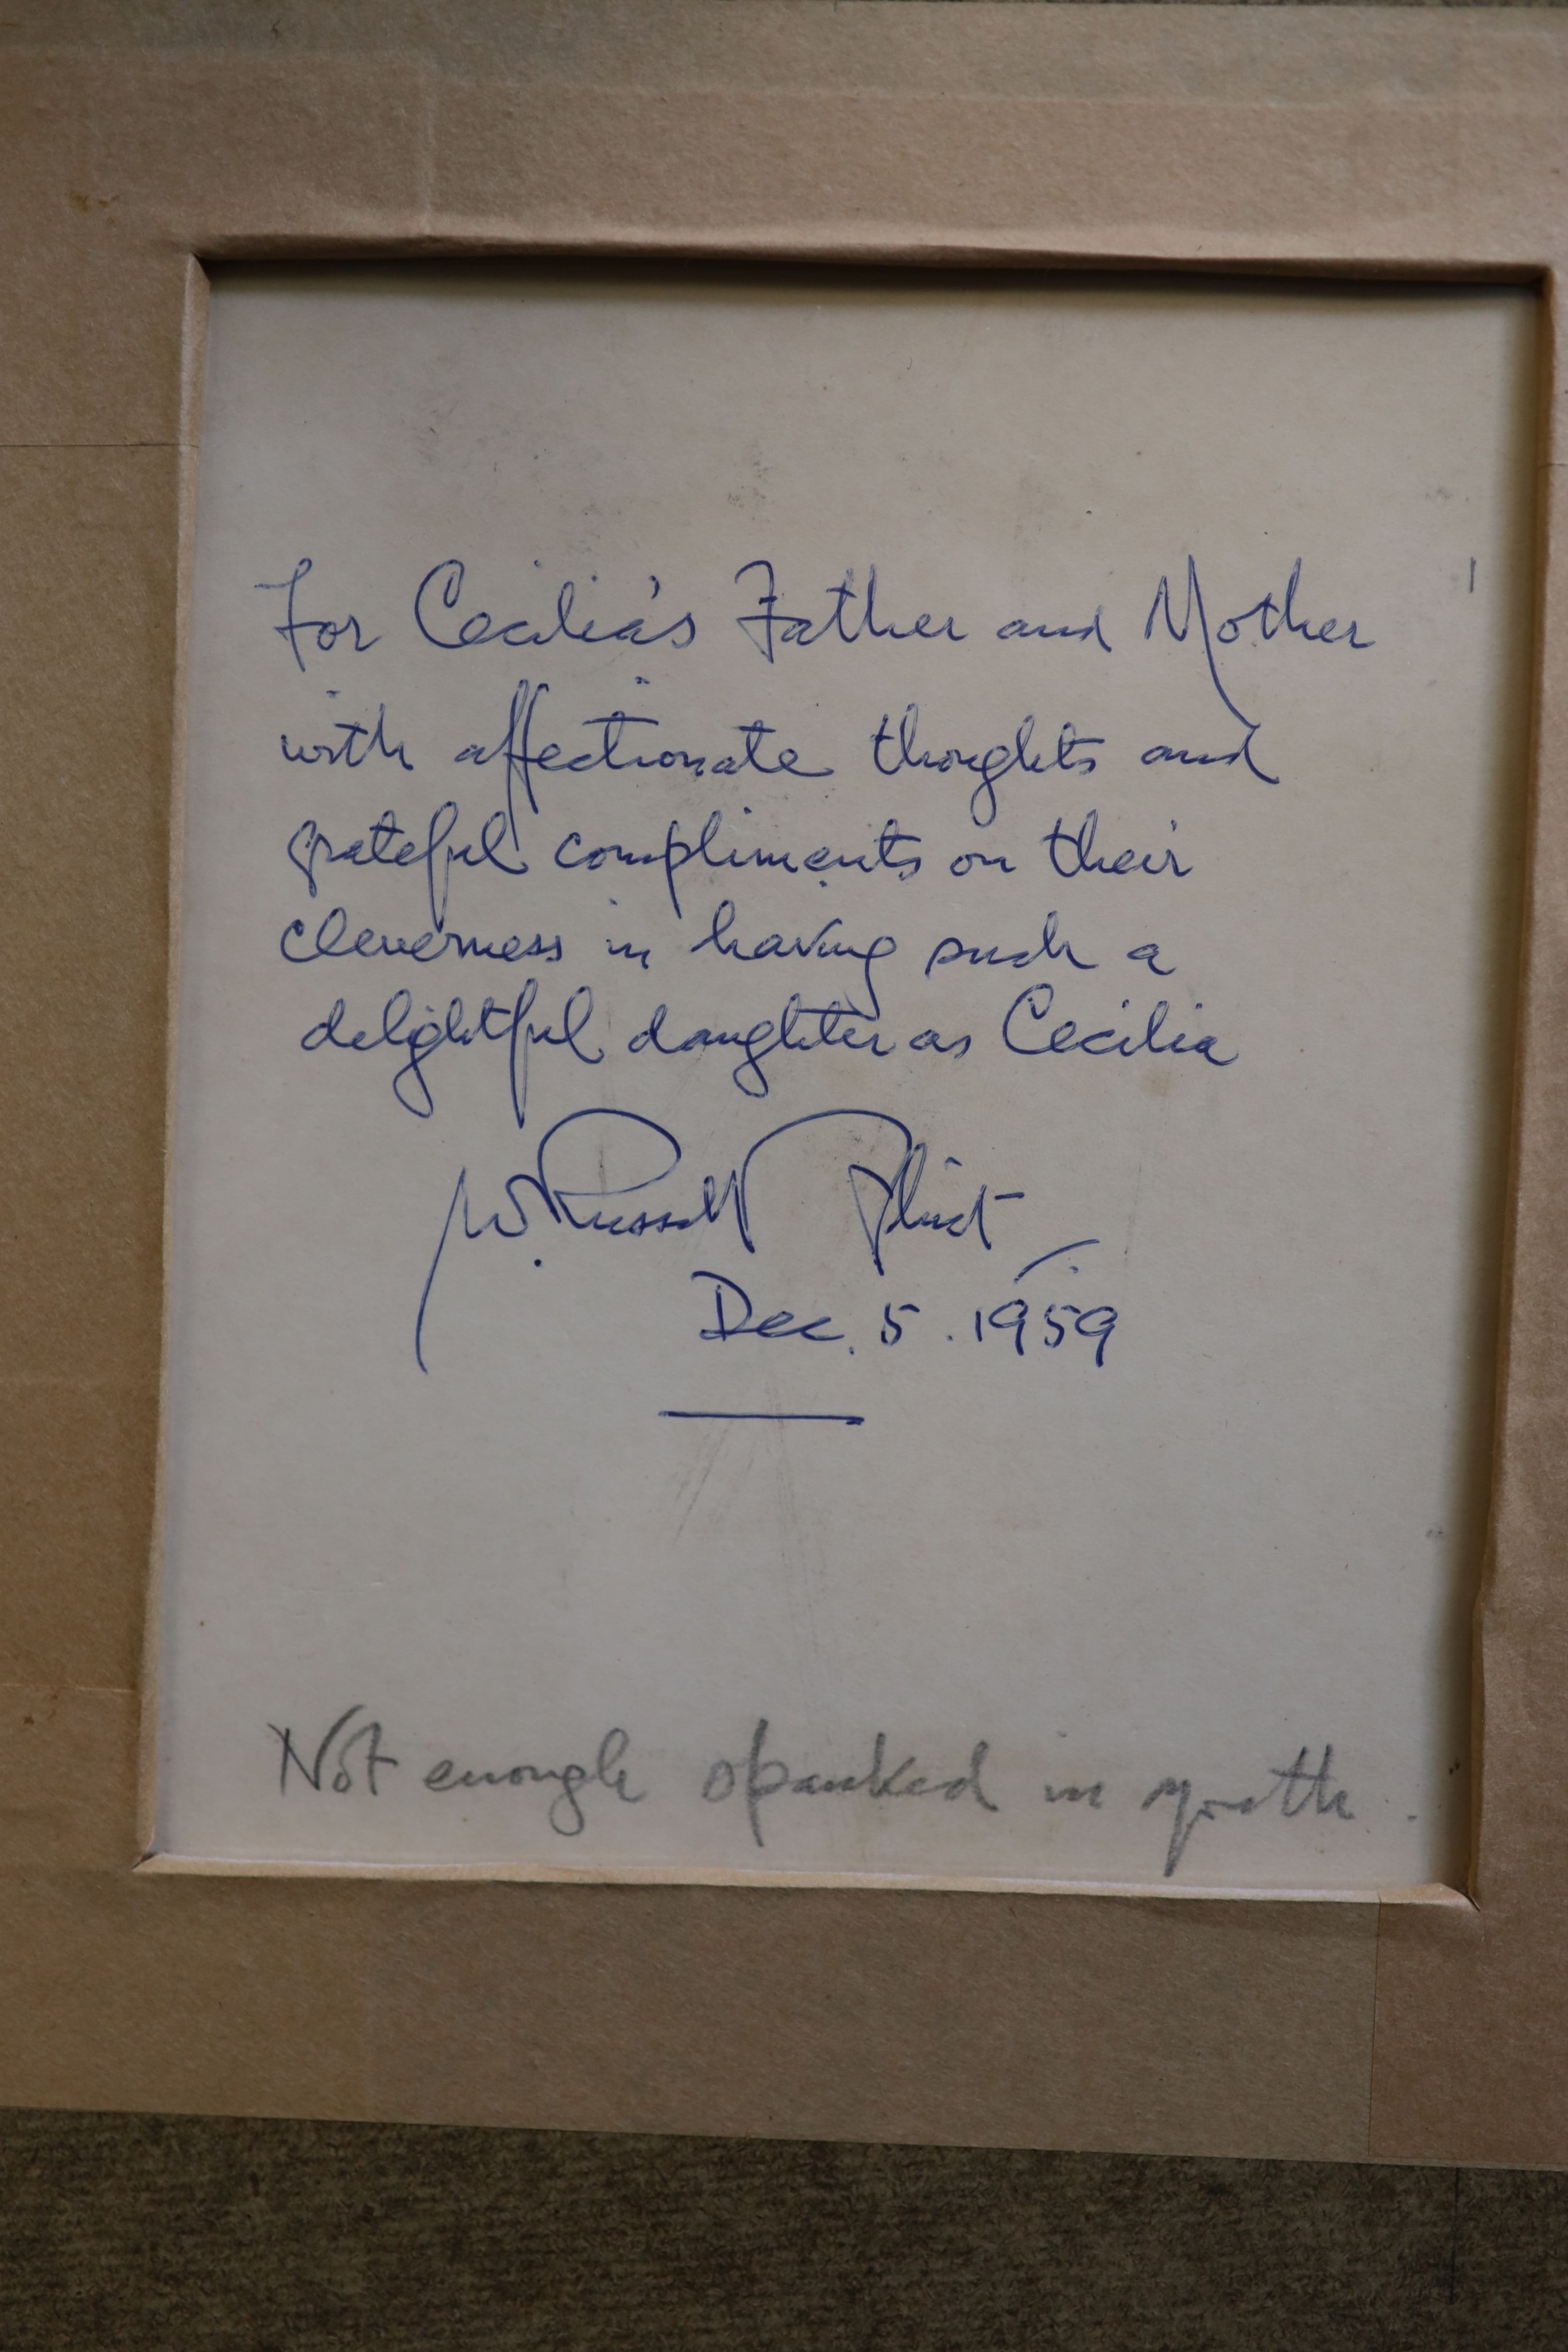 For Cecilia's Father and Mother
with affectionate thoughts and
grateful compliments on their
cleverness in having such a
delightful daughter as Cecilia
W. Russell Flint
Dec. 5. 1959
Not enough spanked in youth.